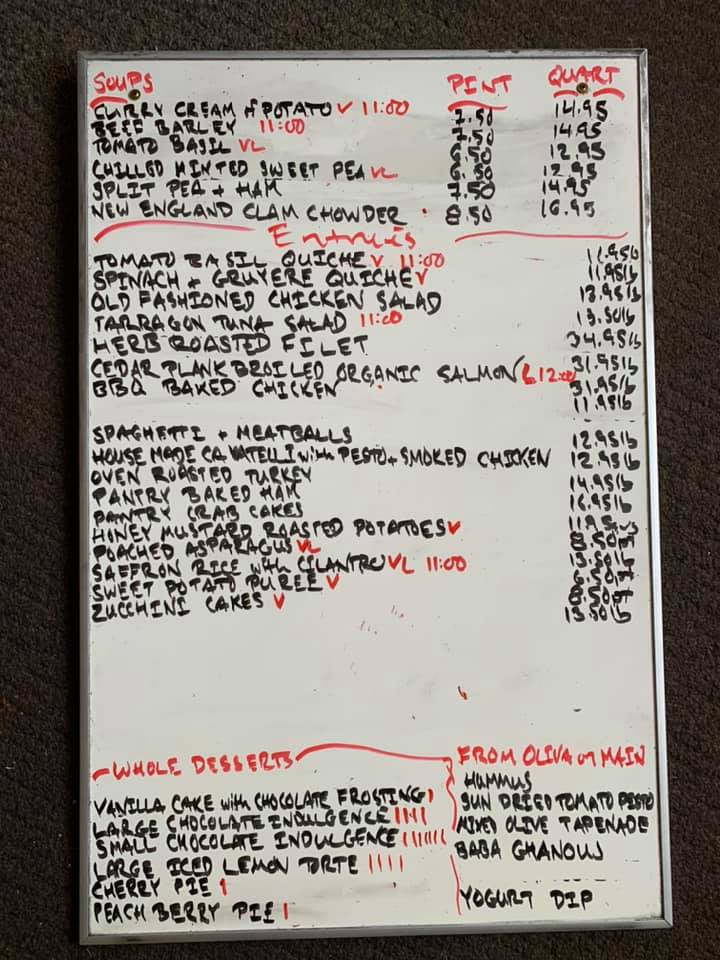 SOUPS PINT QUART
CURRY CREAM of POTATO V 11:00 7.50 14.95
BEEF BARLEY 11:00 7.50 14.95
TOMATO BASIL VL 6.50 12.95
CHILLED MINTED SWEET PEA VL 6.50 12.95
SPLIT PEA + HAM 7.50 14.95
NEW ENGLAND CLAM CHOWDER 8.50 16.95
Entrées
TOMATO BASIL QUICHE V 11:00 11.95lb
SPINACH + GRUYERE QUICHE V 11.95lb
OLD FASHIONED CHICKEN SALAD 13.95lb
TARRAGON TUNA SALAD 11:00 13.50lb
HERB ROASTED FILET 34.95lb
CEDAR PLANK BROILED ORGANIC SALMON 31.95lb
BBQ BAKED CHICKEN 31.95lb
11.95lb
SPAGHETTI + MEATBALLS 12.95lb
HOUSE MADE CAVATELLI with PESTO + SMOKED CHICKEN 12.95lb
OVEN ROASTED TURKEY 14.95lb
PANTRY BAKED HAM 16.95lb
PANTRY CRAB CAKES
HONEY MUSTARD ROASTED POTATOES V 8.50pt
POACHED ASPARAGUS VL 13.50lb
SAFFRON RICE with CILANTRO VL 11:00 6.50pt
SWEET POTATO PUREE V 8.50pt
ZUCCHINI CAKES V 13.50lb
WHOLE DESSERTS
VANILLA CAKE with CHOCOLATE FROSTING
LARGE CHOCOLATE INDULGENCE
SMALL CHOCOLATE INDULGENCE
LARGE ICED LEMON TORTE
CHERRY PIE
PEACH BERRY PIE
FROM OLIVA on MAIN
HUMMUS
SUN DRIED TOMATO PESTO
MIXED OLIVE TAPENADE
BABA GHANOUS
YOGURT DIP